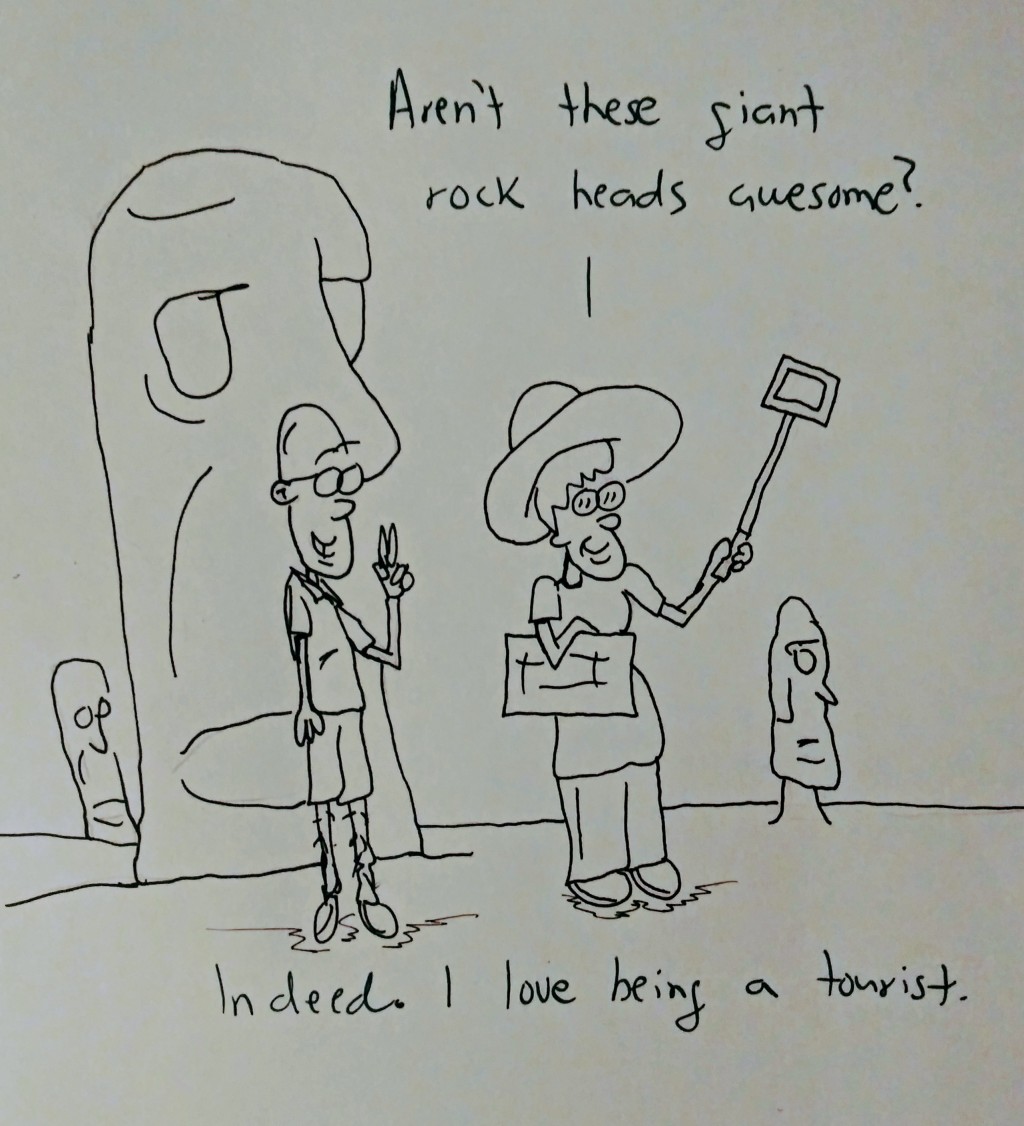 Aren't these giant
rock heads awesome?
Indeed. I love being a tourist.